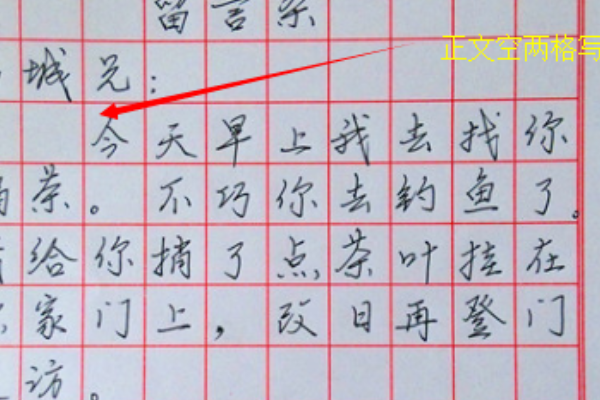 留言条
城兄：
正文空两格写
今天早上我去找你
喝茶。不巧你去钓鱼了。
给你捎了点茶叶挂在
你家门上，改日再登门
访。